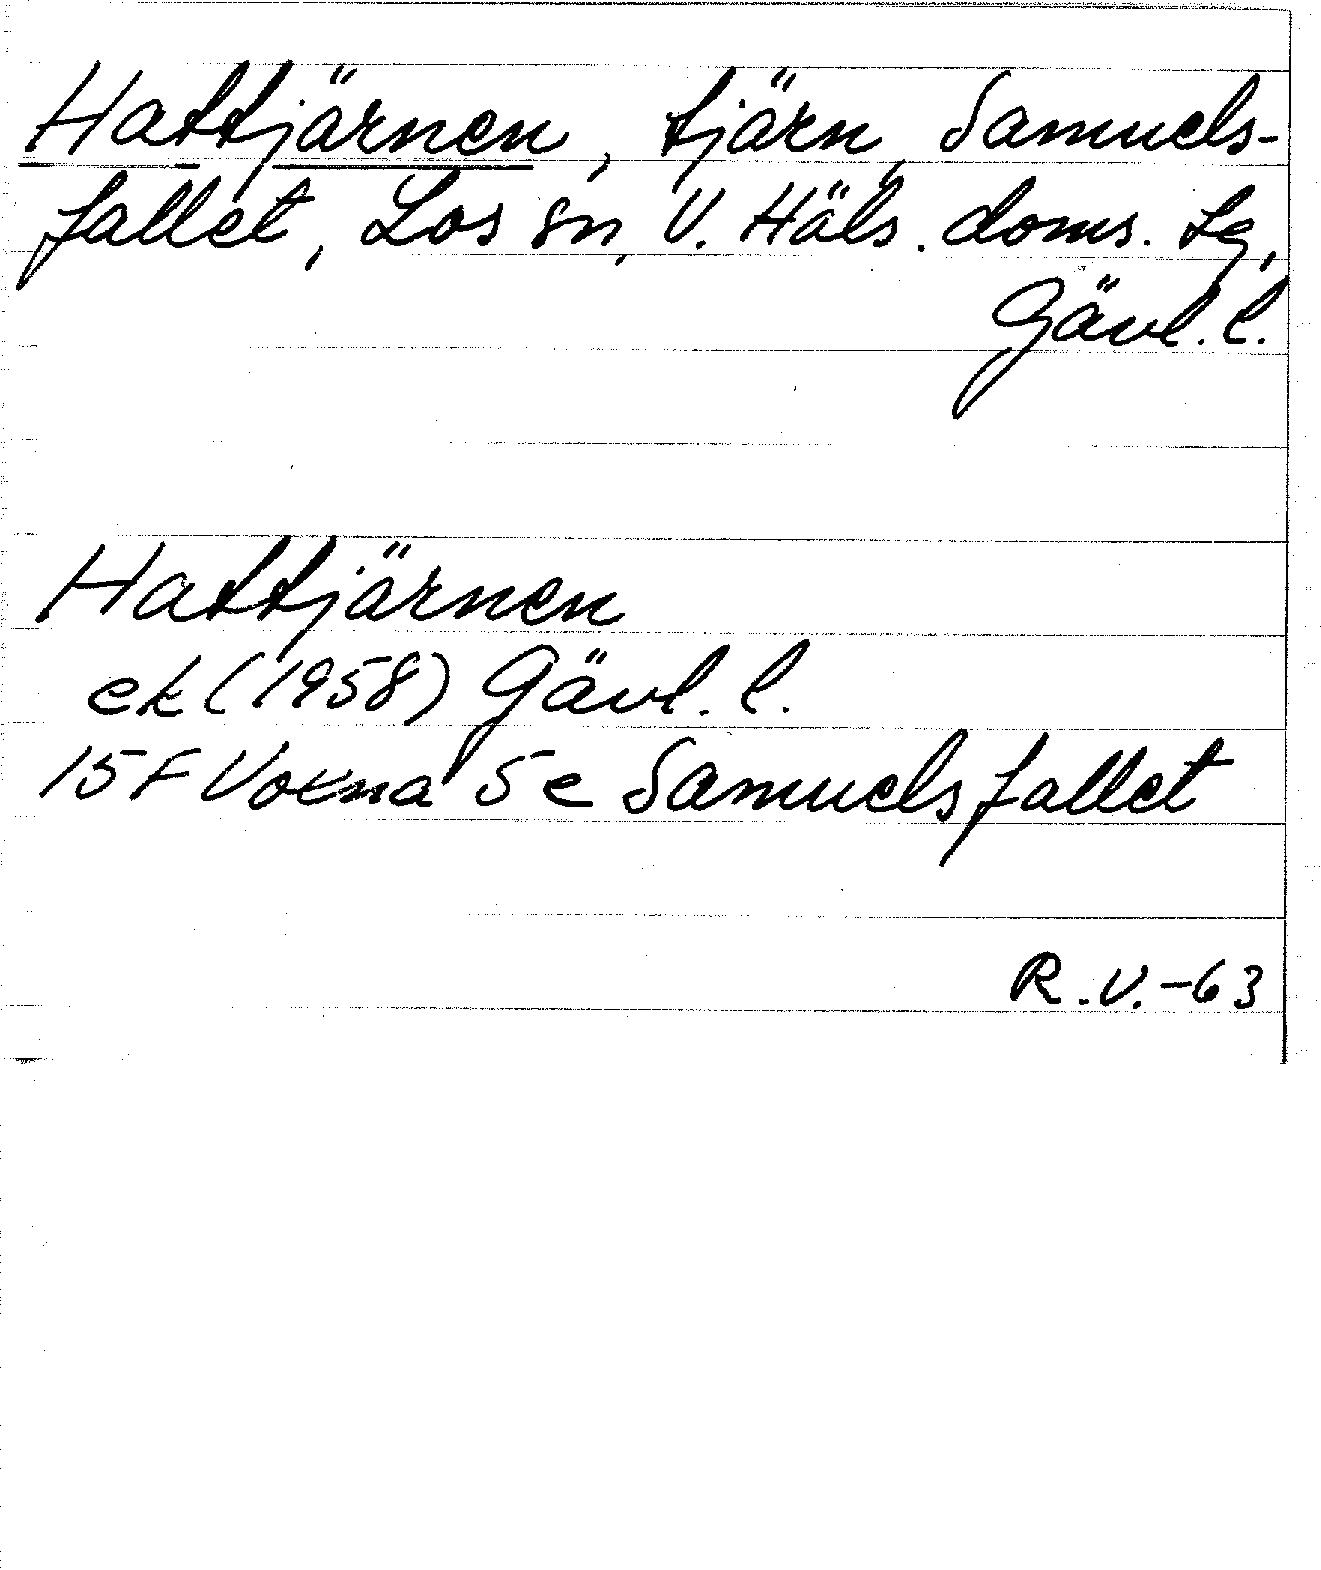 Hattjärnen, tjärn, Samuels-
fallet, Los sn, V. Häls. doms. tg,
Gävl. l.
Hattjärnen
ek (1958) Gävl. l.
15 F Voxna 5 e Samuelsfallet
R.V.-63